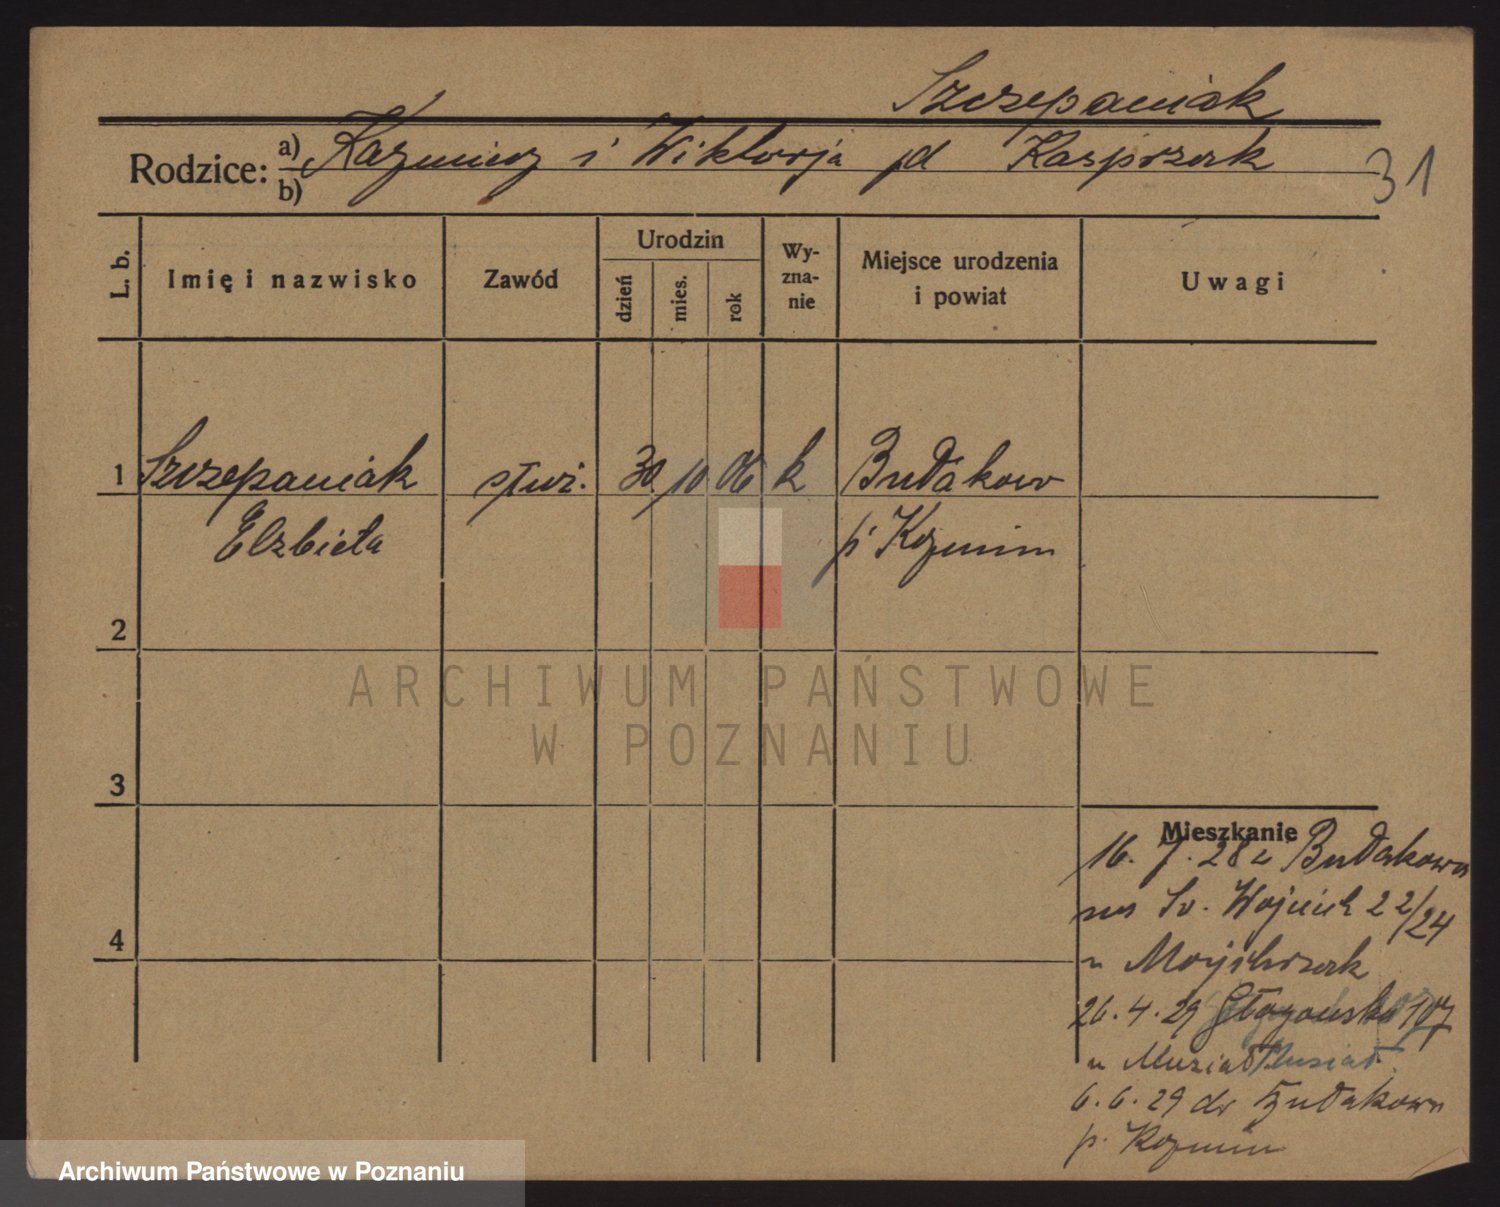 Szczepaniak
Rodzice: a) Kazimierz i Wiktorja pd Kasprzak
b)
31
L. b.
Imię i nazwisko
Zawód
Urodzin
dzień
mies.
rok
Wy-
zna-
nie
Miejsce urodzenia
i powiat
Uwagi
1 Szczepaniak służ. 30 10 06 k Budakow
Elzbieta p. Kozmin
2
3
4
ARCHIWUM PAŃSTWOWE
W POZNANIU
Mieszkanie
16. 7. 28 z Budakowa
na Św. Wojciech 22/24
u
26. 4. 29 Głogowska 107
u Musiał
6. 6. 29 do Budakowa
p. Kozmin
Archiwum Państwowe w Poznaniu